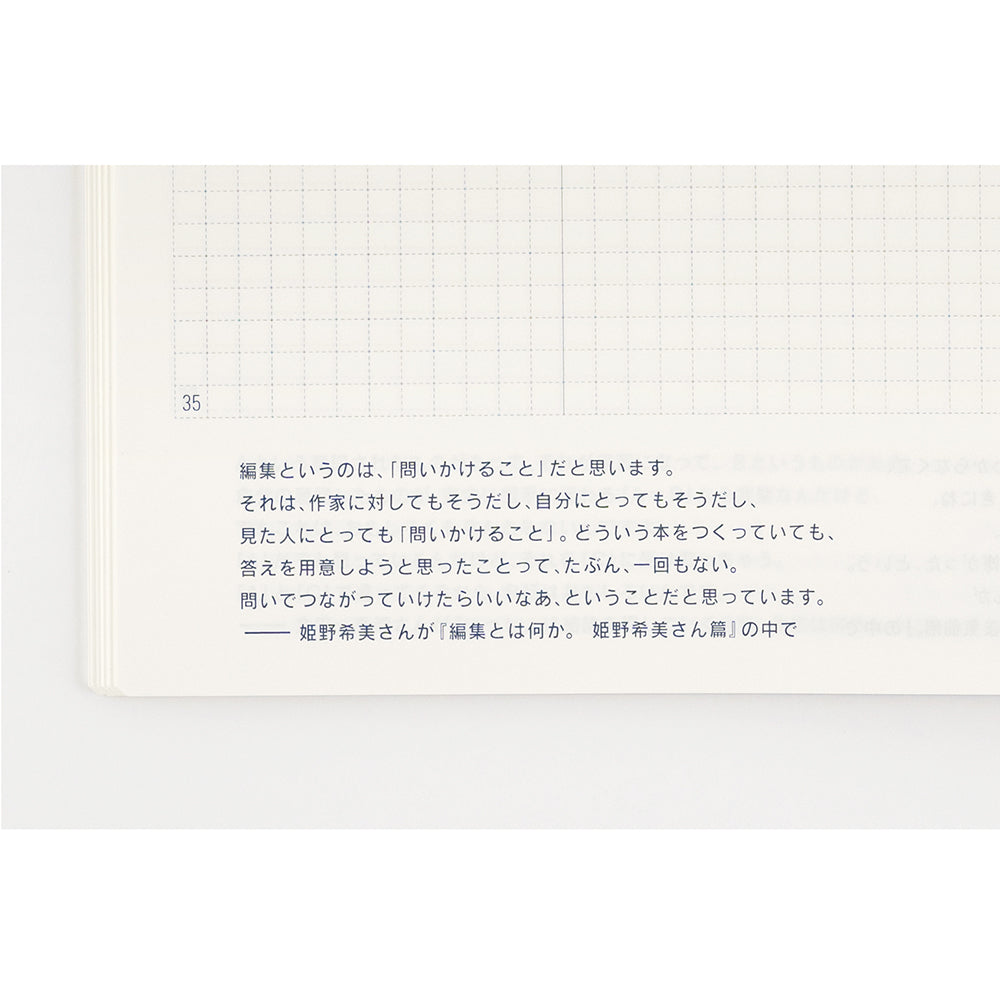 35
編集というのは、「問いかけること」だと思います。
それは、作家に対してもそうだし、自分にとってもそうだし、
見た人にとっても「問いかけること」。どういう本をつくっていても、
答えを用意しようと思ったことって、たぶん、一回もない。
問いでつながっていけたらいいなあ、ということだと思っています。
―― 姫野希美さんが『編集とは何か。 姫野希美さん篇』の中で